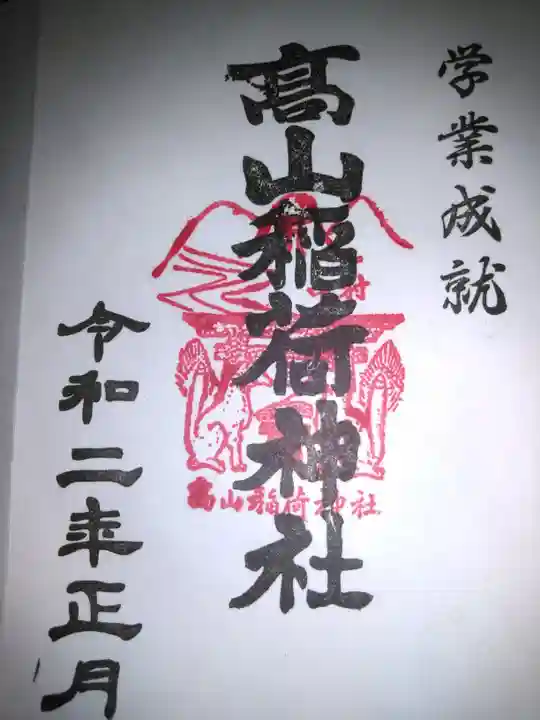 学業成就
髙山稲荷神社
村
高山稲荷神社
令和二年正月